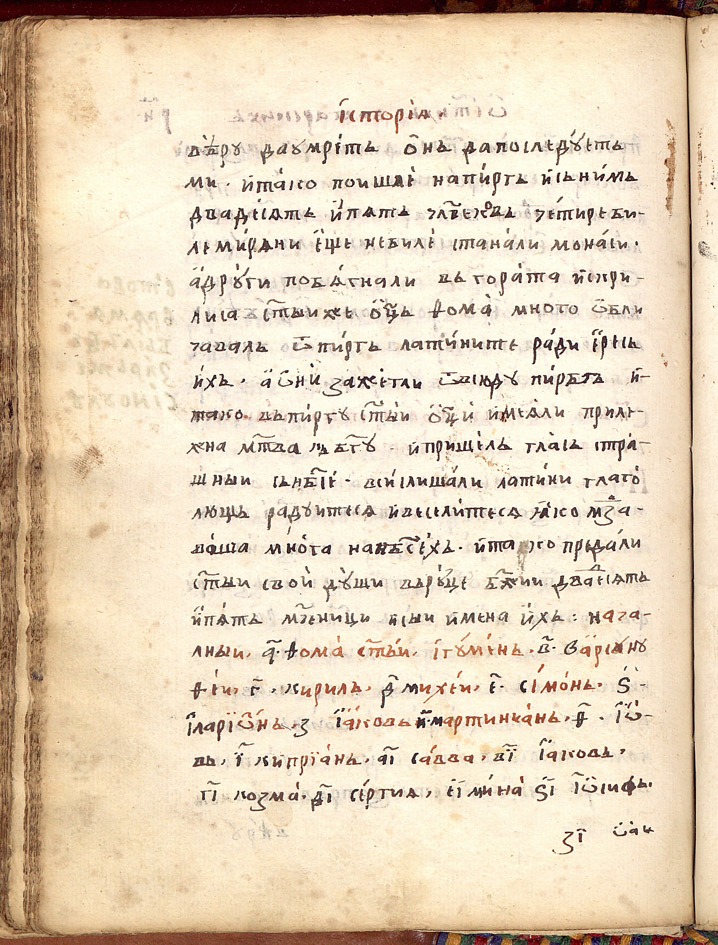 їсторїѧ
вѣру да умретъ ѡнъ да последуетъ
ми. и тако поишлѐ на пиргъ и сь нимъ
двадесѧтъ и пѧтъ чл҃вековъ четире би-
ле мирѧни еще не биле станали монаси.
а други побѧгнали въ гората и скри-
лисѧ ст҃ыи же ѿцъ ѳома много ѡбли
чавалъ ѿ пиргъ латините ради ересъ
ихъ. а ѡни зажегли ѿвсюду пиргътъ и
тако въ пиргу ст҃ыи ѿци имеѧли приле
жна мл҃тва къ бг҃у. и пришелъ гласъ стра-
шныи съ нб҃се. вси слишали латини глаго
лющъ радуитесѧ и веселитесѧ ꙗко мзда
ваша многа на нб҃сехъ. и тако предали
ст҃ыи свои души въ руце бж҃ии двадесѧтъ
и пѧтъ мч҃еници и сыи имена ихъ: нача-
лныи, а҃. ѳома ст҃ыи, игуменъ. в҃. варсѹну
феи, г҃. кирилъ, д҃ михеи, е҃. сїмонъ, ѕ҃
їларїѡнъ. з҃ їаковъ и҃ мартинїанъ, ѳ҃. їѡ-
въ. ї҃ кипрїанъ, аї҃ савва, вї҃ їаковъ,
гї҃ козма. дї҃ сергиѧ, еї҃ мина ѕї҃ їѡсифъ.
зї҃